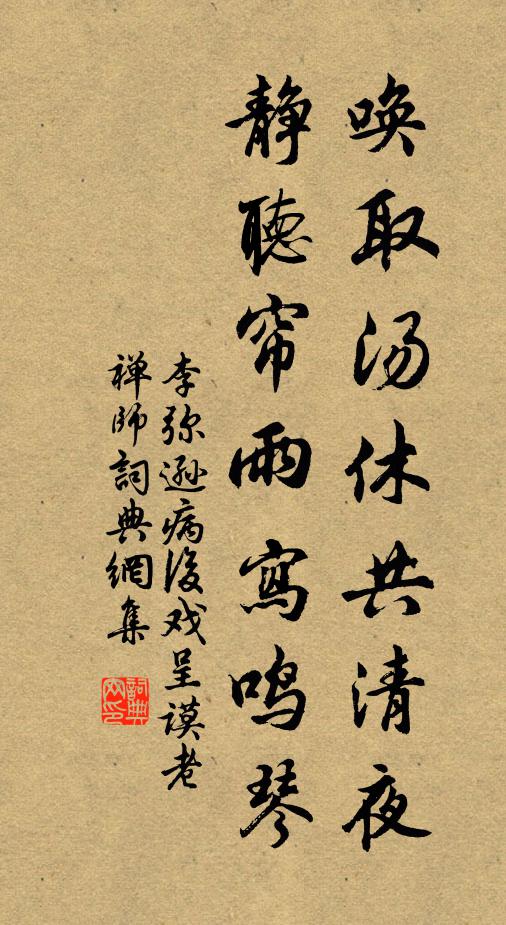 唤取汤休共清夜
静聽帘雨寫鸣琴
李弥遜病後戏呈谟老
禅師詞典網集
詞典网印